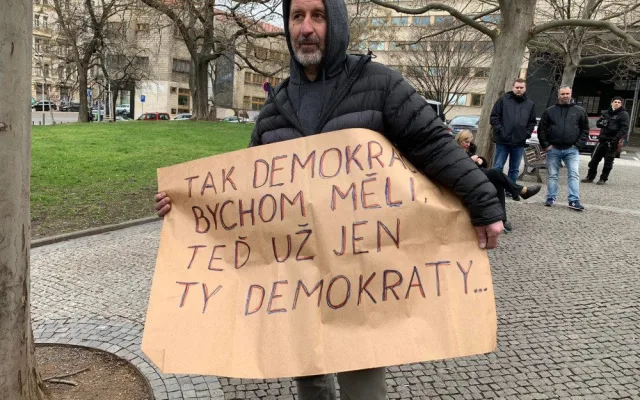 TAK DEMOKRA
BYCHOM MĚLI,
TEĎ UŽ JEN
TY DEMOKRATY...